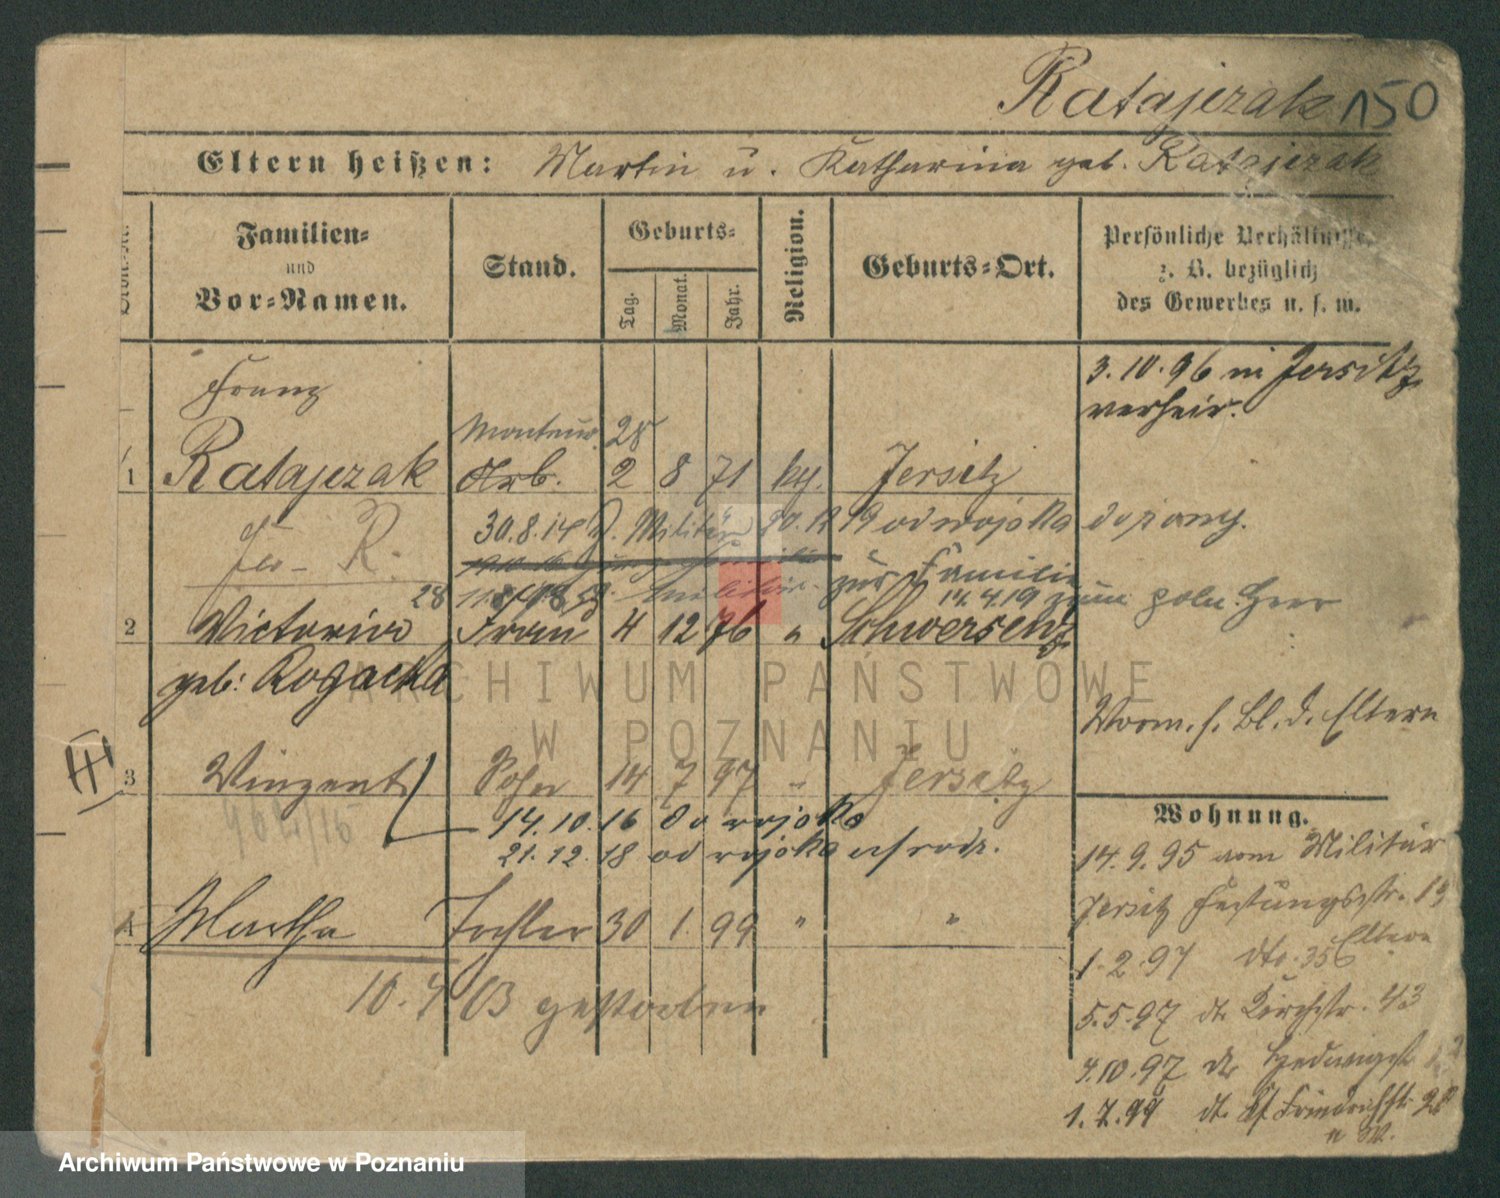 Ratajczak 150
Eltern heißen: Martin u. Katharina geb. Ratajczak
Familien- und Vor-Namen.
Stand.
Geburts-
Tag. Monat. Jahr.
Religion.
Geburts-Ort.
Persönliche Verhältnisse,
z. B. bezüglich
des Gewerbes u. s. w.
3. 10. 96 in Jersitz
verheir.
Franz
Monteur 28
1 Ratajczak Arb. 2 8 71 kth. Jersitz
30.8.14 z. Militär 20.12 19 od wojska do żony.
R.
Militär. zur Familie
28 14.4.19 zum poln. Heer
2 Victoria Frau 4 12 76 " Schwersenz
geb: Rogacka
Vorm. s. Bl. d. Eltern
III
3 Vinzent Sohn 14 7 97 " Jersitz
14. 10. 16 do wojska
21. 12. 18 od wojska
4 Martha Tochter 30 1. 99 " "
10. 4 03 gestorben
Wohnung.
14. 9. 95 vom Militär
Jersitz Festungsstr. 13
1. 2. 97 dto. 35 Eltern
5.5.97 dt. Kirchstr. 43
4.10.97 dt. Hedwigst.
1. 7. 99 dt. Kf. Friedrichstr. 28
ARCHIWUM PAŃSTWOWE
W POZNANIU
Archiwum Państwowe w Poznaniu